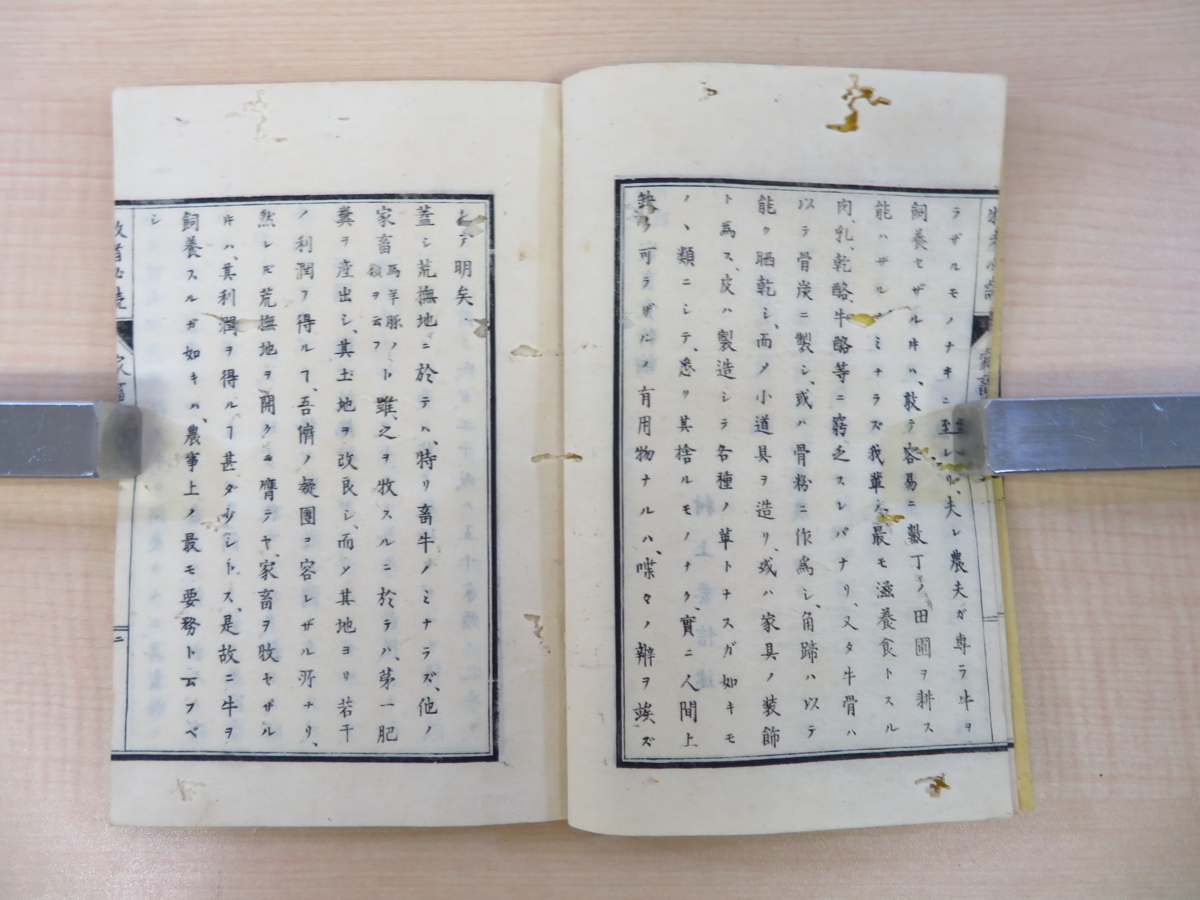 ラザルモノナキニ至レリ、夫レ農夫ガ専ラ牛ヲ
飼養セザルヰハ、敢テ容易ニ數丁ノ田圃ヲ耕ス
能ハザルノミナラズ我輩人最モ滋養食トスル
肉、乳、乾酪、牛酪等ニ窮乏スレバナリ、又タ牛骨ハ
以テ骨炭ニ製シ、或ハ骨粉ニ作爲シ、角蹄ハ以テ
能ク晒乾シ、而メ小道具ヲ造リ、或ハ家具ノ装飾
ト爲ス、皮ハ製造シテ各種ノ革トナスガ如キモ
ノヽ類ニシテ、悉ク其捨ルモノナク、實ニ人間上
缺ク可ラザルノ有用物ナルハ、喋々ノ辯ヲ竢ズ
シテ明矣、
蓋シ荒撫地ニ於テハ、特リ畜牛ノミナラズ、他ノ
家畜馬羊豚ノ類ヲ云フト雖、之ヲ牧スルニ於テハ、苐一肥
糞ヲ産出シ、其土地ヲ改良シ、而シ其地ヨリ若干
ノ利潤ヲ得ルヿ、吾儕ノ疑團ヲ容レザル所ナリ、
然レ𪜈荒撫地ヲ開クモ膺テヤ、家畜ヲ牧セザル
ヰハ、其利潤ヲ得ルヿ甚ダ少シトス、是故ニ牛ヲ
飼養スルガ如キハ、農事上ノ最モ要務ト云フベ
シ
牧者必読
家畜
二